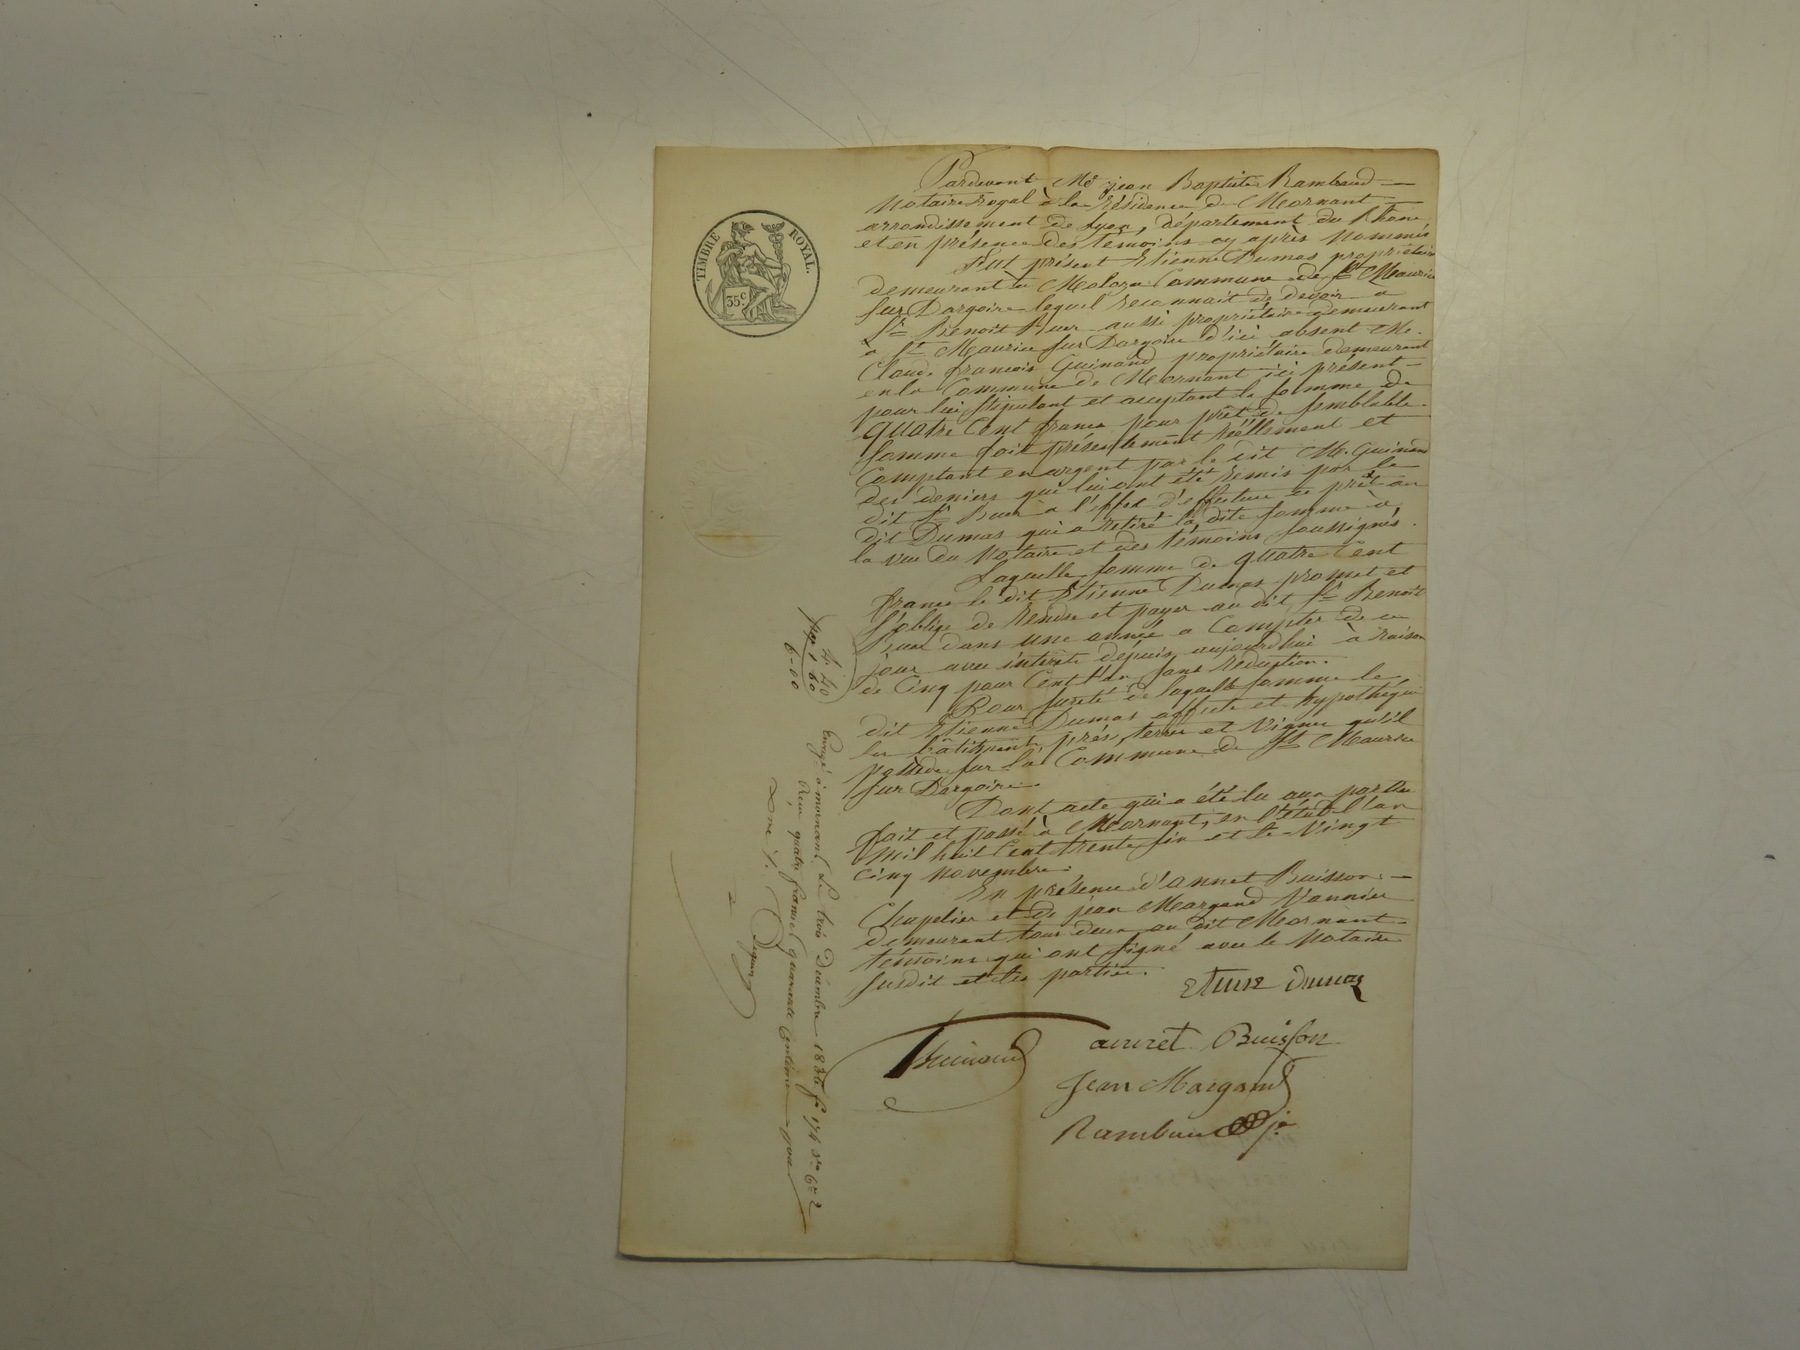 TIMBRE ROYAL.
35c.
Pardevant Me. jean Baptiste Rambaud
Notaire royal à la résidence de Mornant
arrondissement de Lyon, département du Rhône
et en présence des témoins cy après nommés
fut présent Etienne Dumas propriétaire
demeurant à Commune de St. Maurice
sur Dargoire lequel reconnait de devoir a
Sr. Benoit aussi propriétaire demeurant
à St. Maurice sur Dargoire d'ici absent Me.
Claude françois Guinand propriétaire demeurant
en la Commune de Mornant ici présent
pour lui stipulant et acceptant la somme de
quatre Cent francs pour prêt de semblable
somme fait présentement réellement et
Comptant en argent par le dit Mr. Guinand
des deniers qui lui ont été remis par le
dit Sr. à l'effet d'effectuer ce prêt au
dit Dumas qui a retiré la dite somme à
la vue du Notaire et des témoins soussignés.
Laquelle somme de quatre Cent
francs le dit Etienne Dumas promet et
s'oblige de rendre et payer au dit Sr. Benoit
dans une année a Compter de ce
jour avec intérêts depuis aujourdhui à raison
de Cinq pour Cent l'an sans réduction.
Pour sureté de laquelle somme le
dit Etienne Dumas affecte et hypothéque
les bâtiments, prés, terres et vignes qu'il
possède sur la Commune de St. Maurice
sur Dargoire.
Dont acte qui a été lu aux parties
fait et passé à Mornant, en l'étude l'an
Mil huit Cent trente six et le Vingt
cinq novembre.
En présence d'annet Buisson
Chapelier et de jean Margand Vannier
demeurant tous deux au dit Mornant
témoins qui ont signé avec le Notaire
susdit et les parties.
Etiene Dumas
Guinand
annet Buisson
Jean Margand
Rambaud
4 40
1 60
6-00
Enregé à mornant Le trois Décembre 1836 fo 174
Reçu quatre francs quarante centimes